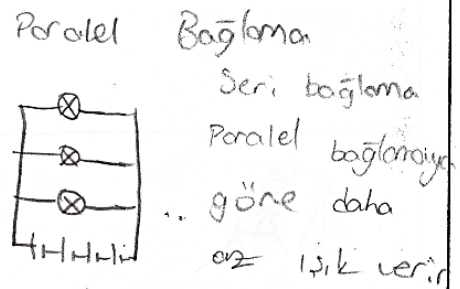 Paralel Bağlama
Seri bağlama
Paralel bağlamaya
.. göre daha
az ışık verir